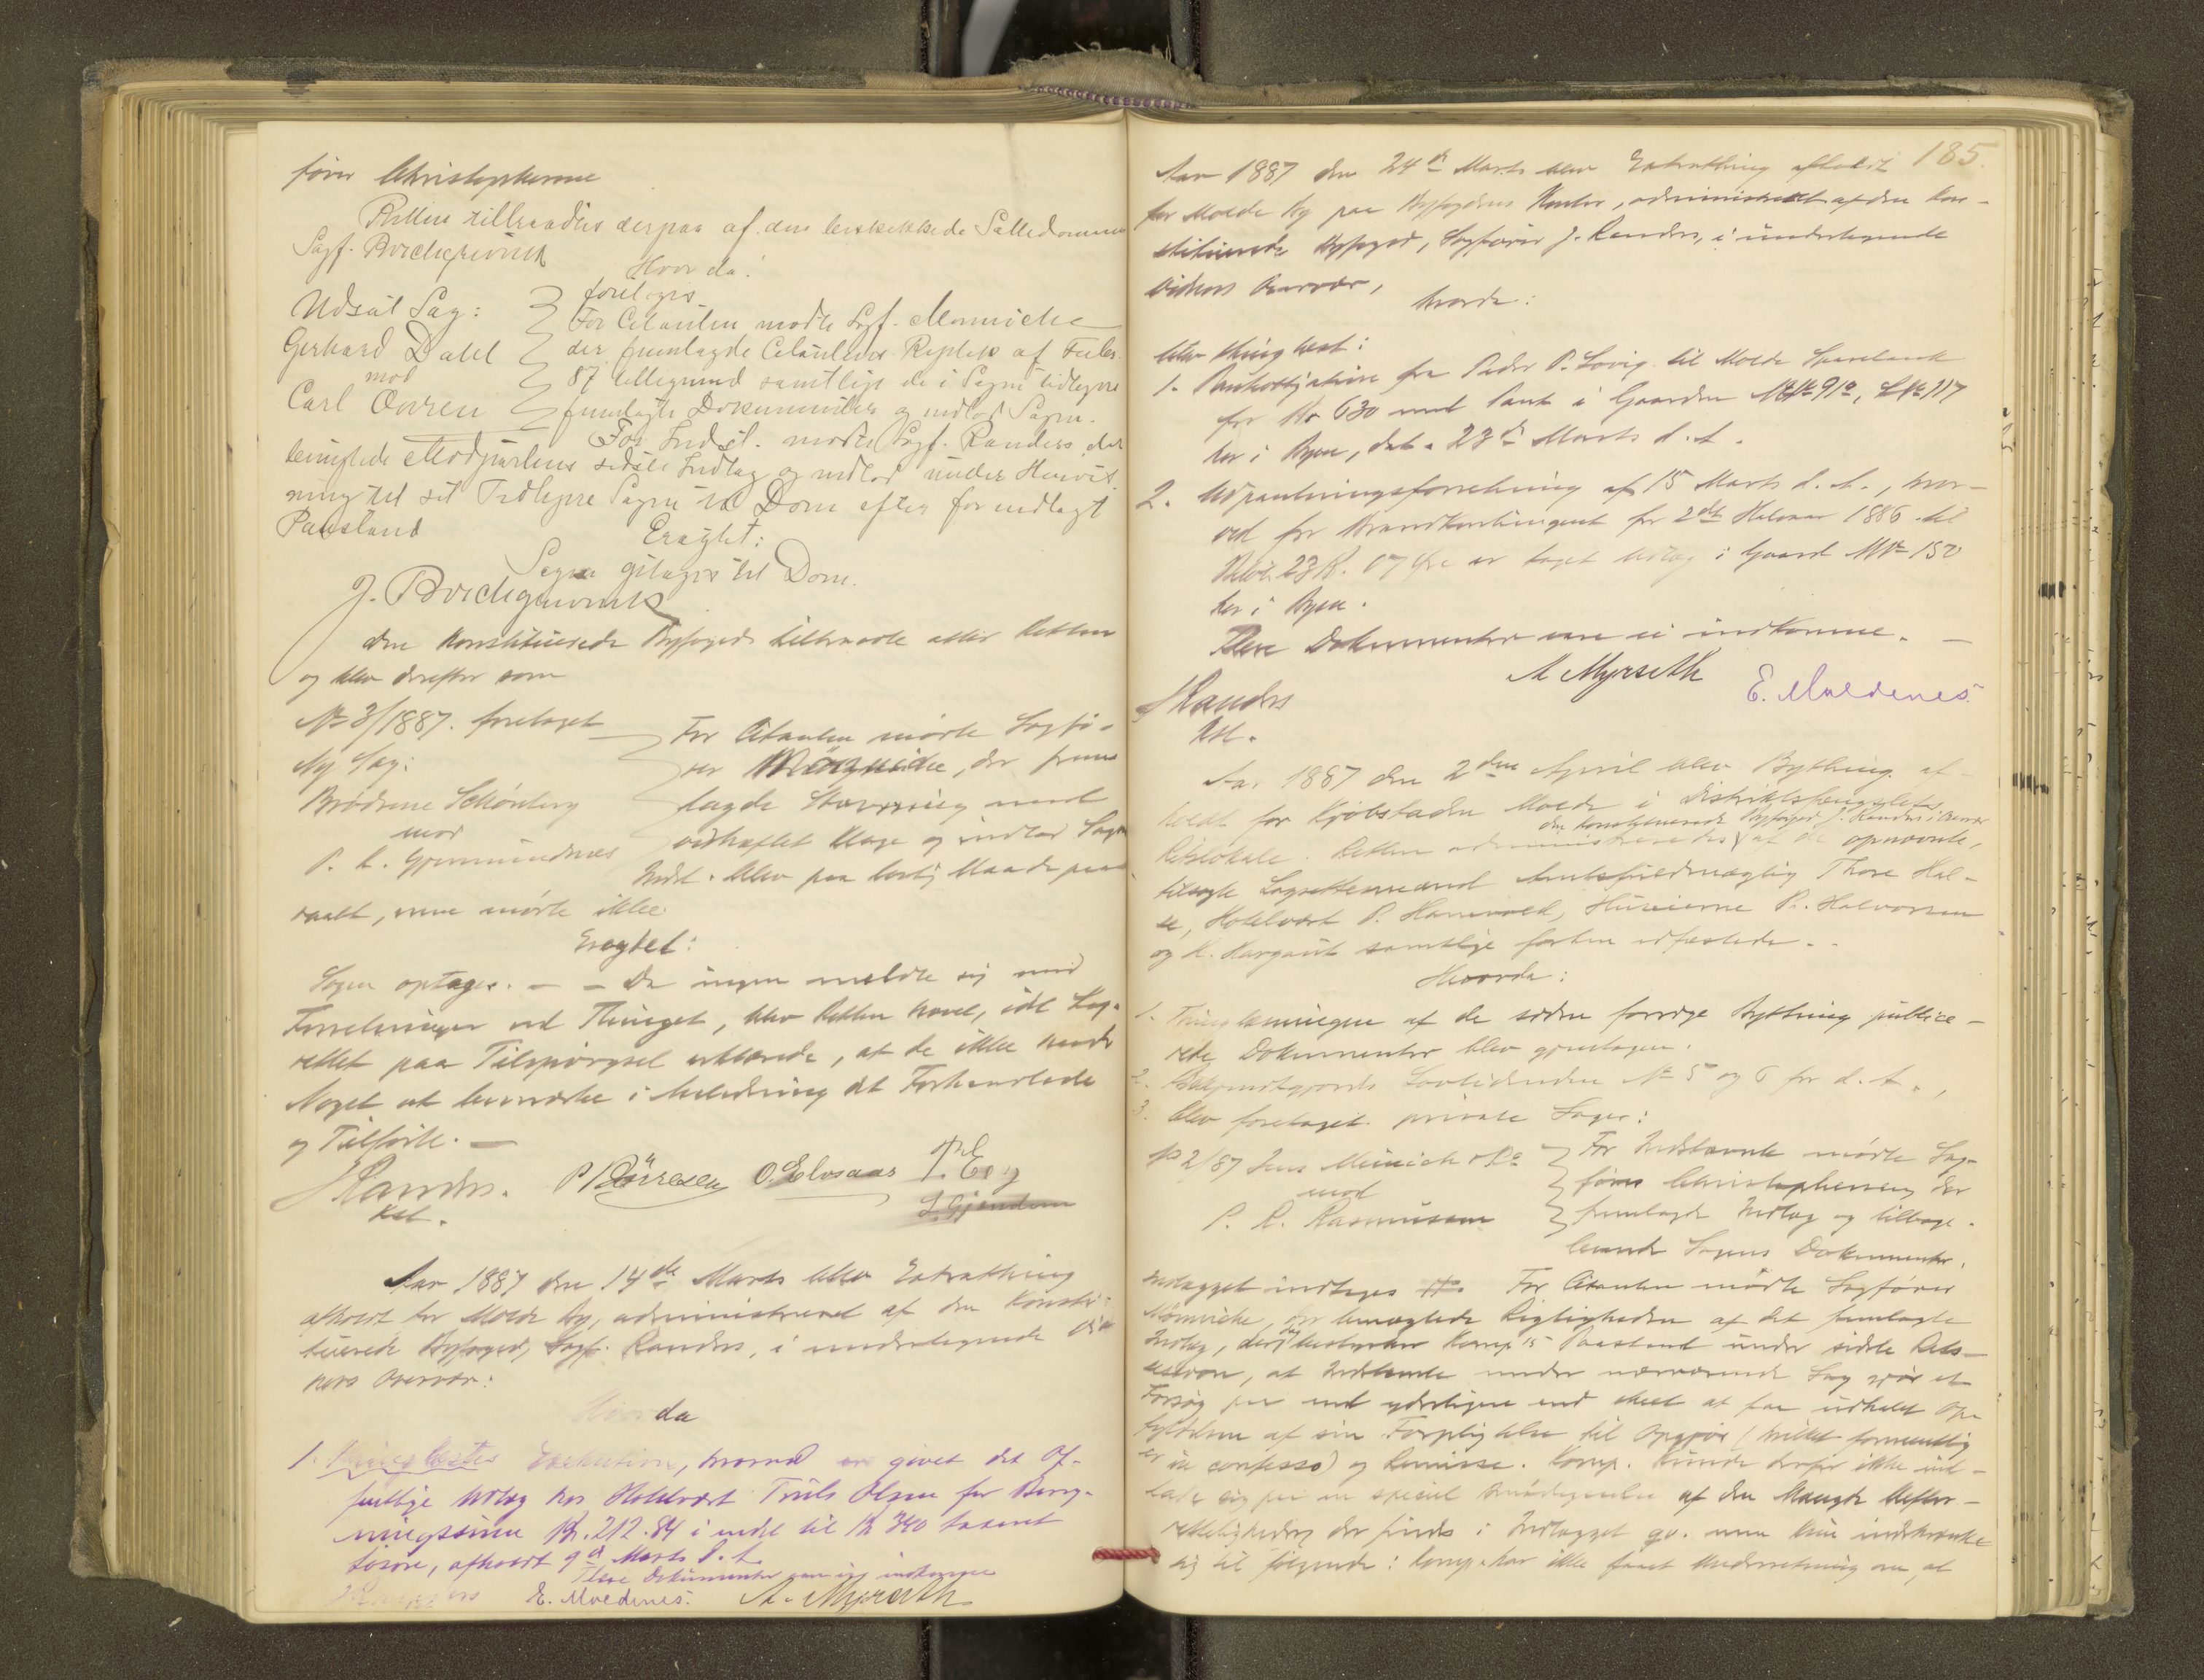 fører Christophersen
Retten tilbraadtes derpaa af den beskikkede Sættedommer
Sagf. Bordegrevink
Hvor da:
foretoges
Udsat Sag:
For Citanten mødte Sgf. Mønniche
Gerhard Dahl
der fremlagde Citantens Replik af Febr.
mod
87 tilligemed samtlige de i Sagen tidligere
Carl Owren
fremlagte Dokumenter og indlod Sagen.
For Indst. mødte Sagf. Randers, der
benægtede Modpartens sidste Indlæg og indlod under Henvis-
ning til sit Tidligere Sagen til Dom efter forindlagt
Paastand
Eragtet:
Sagen optages til Dom.
J. Bordegrevink
den konstituerede Byfoged tiltraadte atter Retten
og blev derefter som
No 3/1887. foretaget
For Citanten mødte Sagfø-
Ny Sag:
rer Mønniche, der frem-
Brødrene Schönberg
lagde Stævning med
mod
vedhæftet Klage og indlod Sagen
P. L. Gjermundnæs
Indst. blev paa lovlig Maade paa-
raabt, men mødte ikke.
Eragtet:
Sagen optages. — — Da ingen meldte sig med
Forretninger ved Thinget, blev Retten hævet, idet Lag-
rettet paa Tilspørgsel erklærede, at de ikke havde
Noget at bemærke i Anledning det Forhandlede
og Tilførte. —
J Randers. P Børresen O. Elvsaas T. Eeg
Kst. L. Gjendem
Aar 1887 den 14de Marts blev Extrathing
afholdt for Molde By, administreret af den Konsti-
tuerede Byfoged, Sagf. Randers, i undertegnede Vid-
ners Overvær:
Hvorda
1. Thinglæstes Exekution, hvorved er givet det Of-
fentlige Udlæg hos Hotelvært Truls Olsen for Bevog-
ningssum Kr. 212.84 i endel til Kr 340 taxeret
Løsøre, afholdt 9de Marts d. A.
Flere Dokumenter vare ej indkomne
J Randers E. Moldenes. A. Myrseth
185.
Aar 1887 den 24de Marts blev Extrathing afholdt
for Molde By paa Byfogdens Kontor, administreret af den kon-
stituerede Byfoged, Sagfører J. Randers, i undertegnede
Vidners Overvær,
hvorda:
blev thinglæst:
1. Panteobligation fra Peder P. Lovig til Molde Sparebank
for Kr 630 med Pant i Gaarden MNo 91a, LNo 117
her i Byen, dat. 23de Marts d. A.
2. Udpantningsforretning af 15 Marts d. A., hvor-
ved for Brandkontingent for 2det Halvaar 1886 til
Beløb 23 Kr. 07 Øre er taget Udlæg i Gaard MNo 150
her i Byen.
Flere Dokumenter vare ei indkomne. —
A Myrseth E. Moldenes.
J Randers
Kst.
Aar 1887 den 2den April blev Bything af-
holdt for Kjøbstaden Molde i Distriktsfængslets
den konstituerede Byfoged J. Randers i Overvær
Retslokale. Retten administreredes af de opnævnte,
tilsagte Lagrettemænd Amtsfuldmægtig Thore Hal-
se, Hotelvært P. Hammold, Huseierne P. Halvorsen
og K. Hargaut samtlige forhen edfæstede. -
Hvorda:
1. Thinglæsningen af de siden forrige Bything publice-
rede Dokumenter blev gjentagen.
2. Bekjendtgjordes Lovtidenden No 5 og 6 for d. A.,
3. blev foretaget private Sager:
No 2/87 Jens Meinich & Co
For Indstævnte mødte Sag-
mod
fører Christophersen, der
P. R. Rasmussen
fremlagde Indlæg og tilbage-
leverede Sagens Dokumenter.
Indlægget indtages #. For Citanten mødte Sagfører
Mønniche, der benægtede Rigtigheden af det fremlagte
Indlæg, der bestyrker Komp's Paastand under sidste Rets-
session, at Indstævnte under nærværende Sag gjør et
Forsøg paa end yderligere end skeet at faa udhalet Op-
fyldelsen af sin Forpligtelse til Opgjør (hvilket formentlig
er in confesso) og Remisse. Komp. kunde derfor ikke ind-
lade sig paa en speciel Imødegaaelse af den Mængde Uefter-
retteligheder der findes i Indlægget qv. men kun indskrænke
sig til følgende: Komp. har ikke faaet Underretning om, at